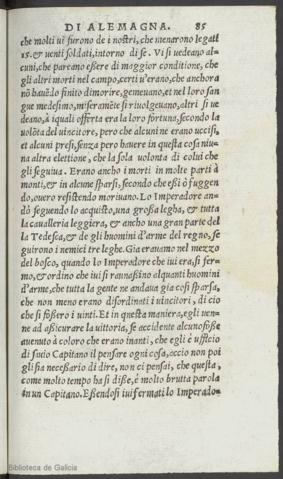 DI ALEMAGNA. 85
che molti ui furono de i nostri, che menarono legati
15. & uenti soldati, intorno di se. Vi si uedeano al-
cuni, che pareano eßere di maggior conditione, che
gli altri morti nel campo, certi u'erano, che anchora
nō hauēdo finito di morire, gemeuano, et nel loro san
gue medesimo, miseramēte si riuolgeuano, altri si ue
deano, à iquali offerta era la loro fortuna, secondo la
uolōta del uincitore, pero che alcuni ne erano uccisi,
et alcuni presi, senza pero hauere in questa cosa niu-
na altra elettione, che la sola uolonta di colui che
gli seguiua. Erano ancho i morti in molte parti à
monti, & in alcune sparsi, secondo che eßi ò fuggen
do, ouero resistendo moriuano. Lo Imperadore an-
dò seguendo lo acquisto, una großa legha, & tutta
la caualleria leggiera, & ancho una gran parte del
la Tedesca, & de gli huomini d'arme del regno, se
guirono i nemici tre leghe. Gia erauamo nel mezzo
del bosco, quando lo Imperadore che iui era, si fer-
mo, & ordino che iui si raunaßino alquanti huomini
d'arme, che tutta la gente ne andaua gia cosi sparsa,
che non meno erano disordinati i uincitori, di cio
che si foßero i uinti. Et in questa maniera, egli uen-
ne ad aßicurare la uittoria, se accidente alcuno foße
auenuto à coloro che erano inanti, che egli è ufficio
di sauio Capitano il pensare ogni cosa, accio non poi
gli sia neceßario di dire, non ci pensai, che questa,
come molto tempo ha si diße, è molto brutta parola
in un Capitano. Eßendosi iui fermati lo Imperado-
Biblioteca de Galicia